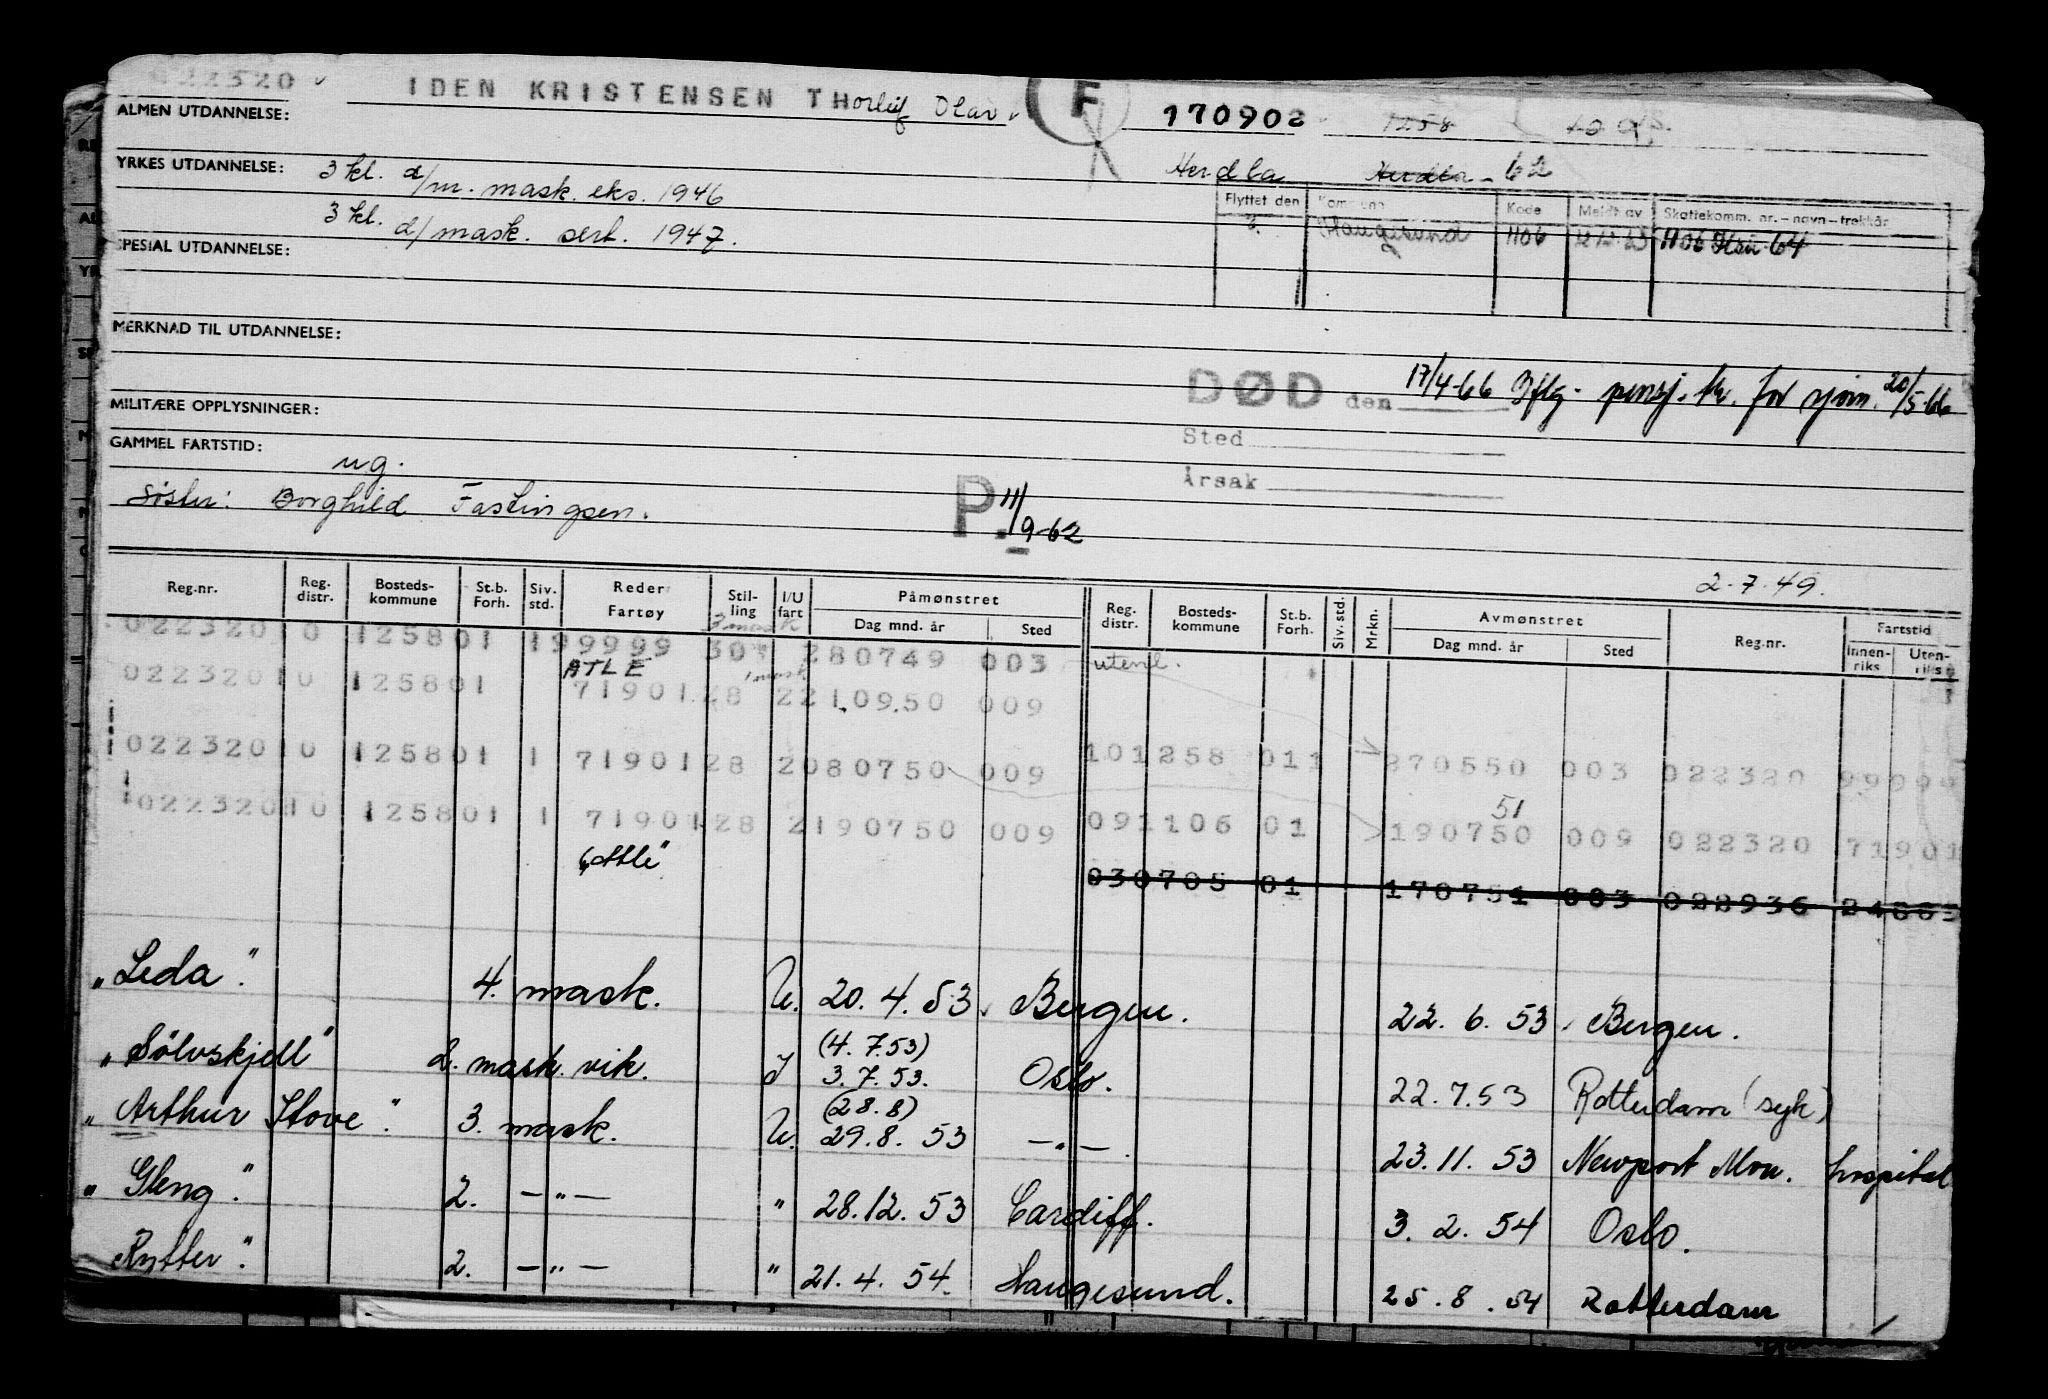 022320 IDEN KRISTENSEN THorleif Olav F 170902 1258
ALMEN UTDANNELSE:
YRKES UTDANNELSE: 3 kl. d/m. mask. eks. 1946 Herdla Herdla - 62
3 kl. d/mask. sert. 1947.
Flyttet den Kommune Kode Meldt av Skattekomm. nr.-navn-trekkår
Haugesund 1106 1106 Hsu 64
SPESIAL UTDANNELSE:
MERKNAD TIL UTDANNELSE:
DØD den 17/4-66 Iflg. pensj. tr. for sjøm. 20/5-66
MILITÆRE OPPLYSNINGER:
Sted
GAMMEL FARTSTID: ug.
Årsak
Søster: Borghild Fastingsen. P. 11/9-62
2.7.49.
Reg.nr. Reg. distr. Bostedskommune St.b. Forh. Siv. std. Reder Fartøy Stilling I/U fart Påmønstret Dag mnd. år Sted Reg. distr. Bostedskommune St.b. Forh. Siv. std. Mrkn. Avmønstret Dag mnd. år Sted Reg.nr. Fartstid Innenriks Utenriks
3 mask
022320 10 1258 01 1 99999 30 280749 003 utenl.
ATLE 1 mask
022320 10 1258 01 71901 28 2 210950 009
022320 10 1258 01 1 71901 28 2 080750 009 10 1258 01 1 270550 003 022320 99999
51
022320 10 1258 01 1 71901 28 2 190750 009 09 1106 01 190750 009 022320 71901
"Atle"
03 0705 01 170751 003 022936 24883
"Leda". 4. mask. U. 20.4.53 Bergen. 22.6.53. Bergen.
(4.7.53)
"Sølvskjell" 2. mask. vik. I 3.7.53. Oslo. 22.7.53 Rotterdam (syk)
(28.8)
"Arthur Stove". 3. mask. U. 29.8.53 —"—. 23.11.53 Newport Mon. hospital
"Gleng". 2. —"— " 28.12.53 Cardiff. 3.2.54 Oslo.
Rytter". 2. —"— " 21.4.54. Haugesund. 25.8.54 Rotterdam